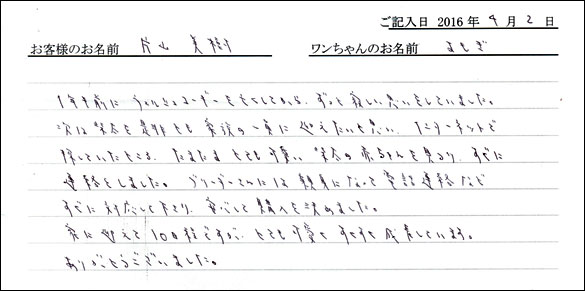 ご記入日 2016年 4月 2日
お客様のお名前 片山 美樹 ワンちゃんのお名前 よもぎ
1年半前に ウェルシュコーギーを亡くしてから、ずっと寂しい思いをしていました。
次は柴犬を是非とも家族の一員に迎えたいと思い、インターネットで
探していたところ、たまたまとても可愛い柴犬の赤ちゃんを見つけ、すぐに
連絡をしました。ブリーダーさんには親身になって電話連絡など
すぐに対応して下さり、安心して購入を決めました。
家に迎えて10日程ですが、とても可愛く すくすく成長しています。
ありがとうございました。